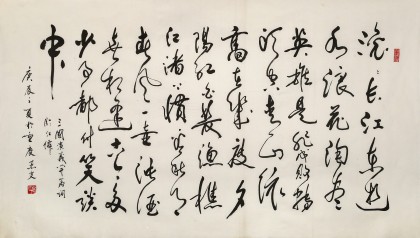 滚滚长江东逝
水浪花淘尽
英雄是非成败转
头空青山依
旧在几度夕
阳红白发渔樵
江渚上惯看秋月
春风一壶浊酒
喜相逢古今多
少事都付笑谈
中
三国演义开篇词
庚辰之夏于重庆